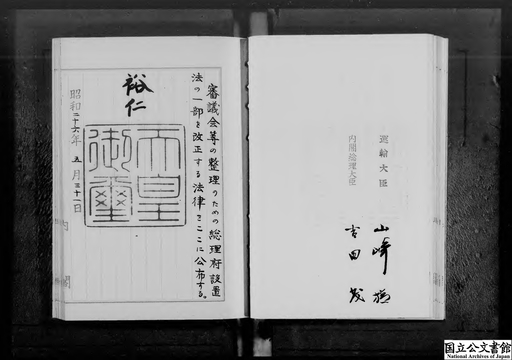 審議会等の整理のための総理府設置
法の一部を改正する法律をここに公布する。
裕仁
天皇
御璽
昭和二十六年五月三十一日
内閣
運輸大臣
山崎猛
内閣総理大臣
吉田茂
国立公文書館
National Archives of Japan